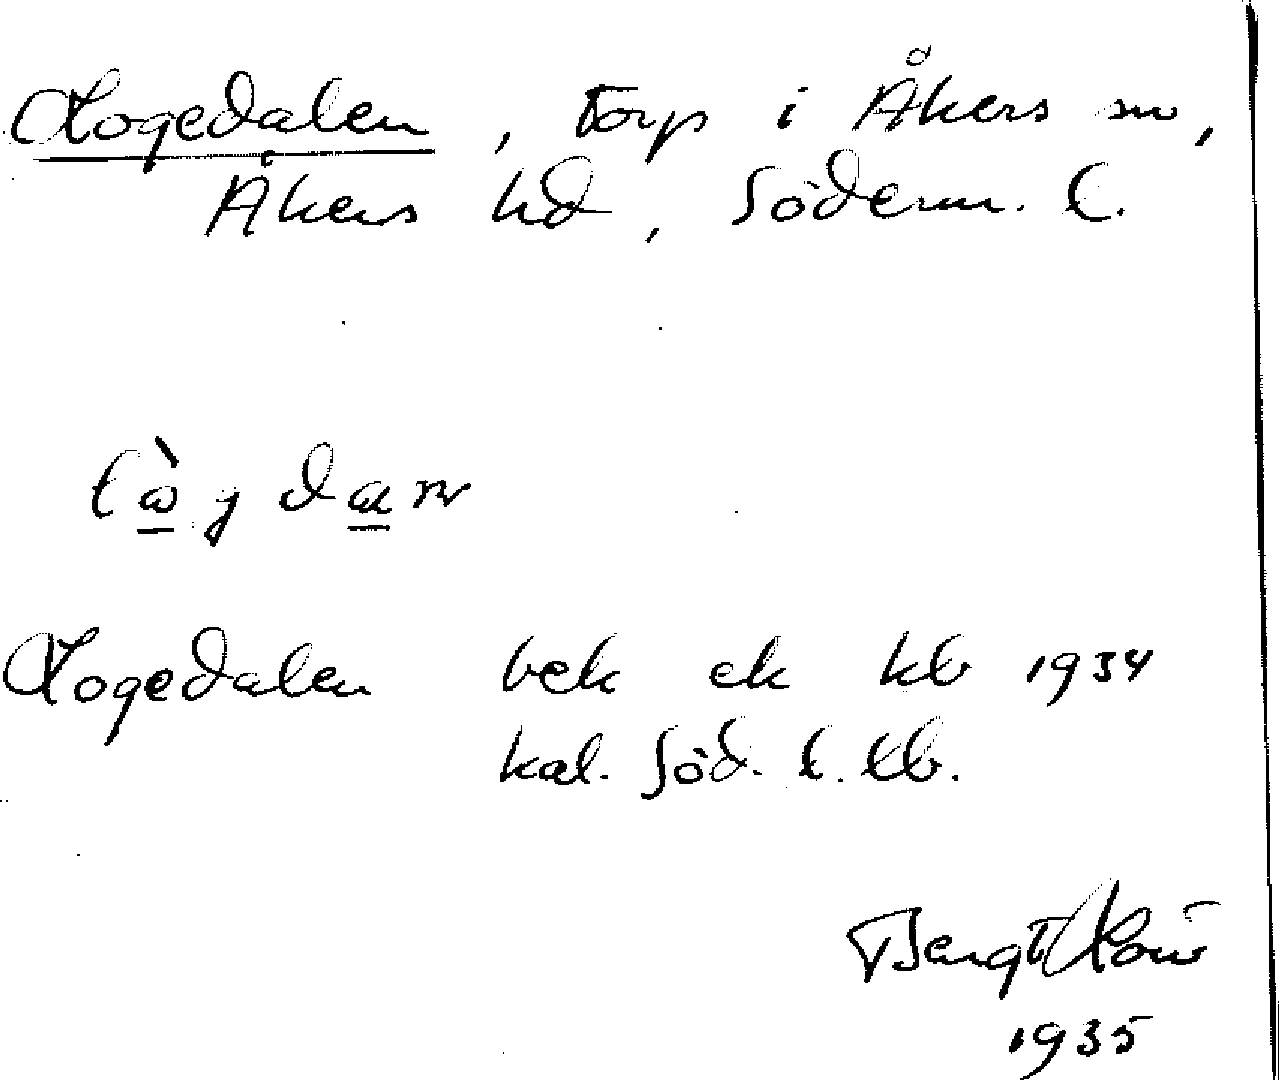 Logedalen, torp i Åkers sn,
Åkers hd, Söderm. l.
lå̀g dan
Logedalen bek ek kb 1934
kal. Söd. l. lb.
Bengt
1935